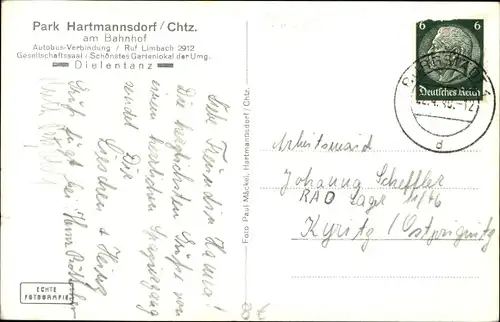 Park Hartmannsdorf / Chtz.
am Bahnhof
Autobus-Verbindung / Ruf Limbach 2912
Gesellschaftssaal / Schönstes Gartenlokal der Umg.
Dielentanz
Liebe Freundin Hanna!
Die herzlichsten Grüße von
einem herrlichen Spaziergang
sendet Dir
Lieschen & Heinz
Gruß fügt bei
ECHTE
FOTOGRAFIE
Foto Paul Mäckel, Hartmannsdorf / Chtz.
6 6
Deutsches Reich
22.4.40.-12
d
Arbeitsmaid
Johanna Scheffler
RAD Lager 11/46
Kyritz / Ostprignitz